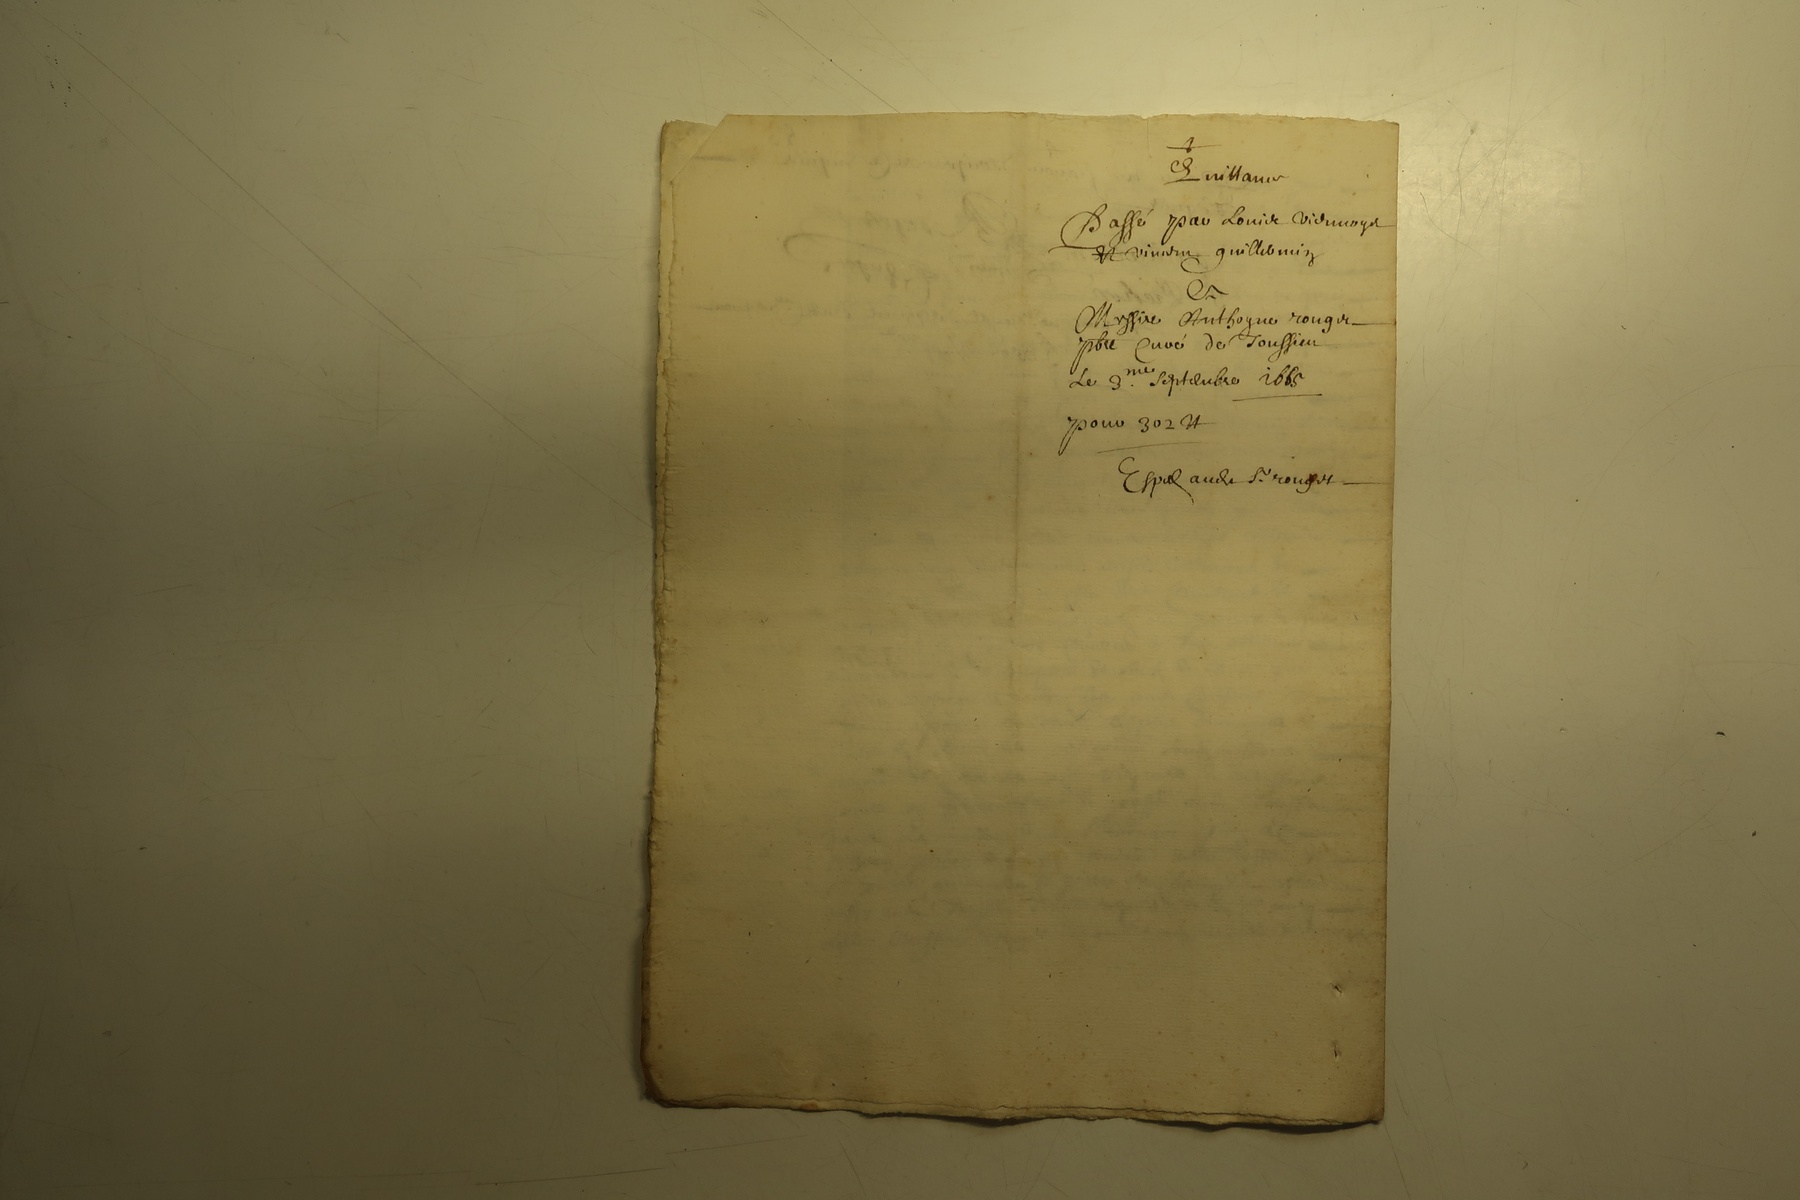 Quittance
Passé par Louis
et vincent guillermin
A
Messire Anthoyne rouger
pbre Curé de Toussieu
Le 3.me Septembre 1665
pour 302 ₶
Espel audt Sr rouger